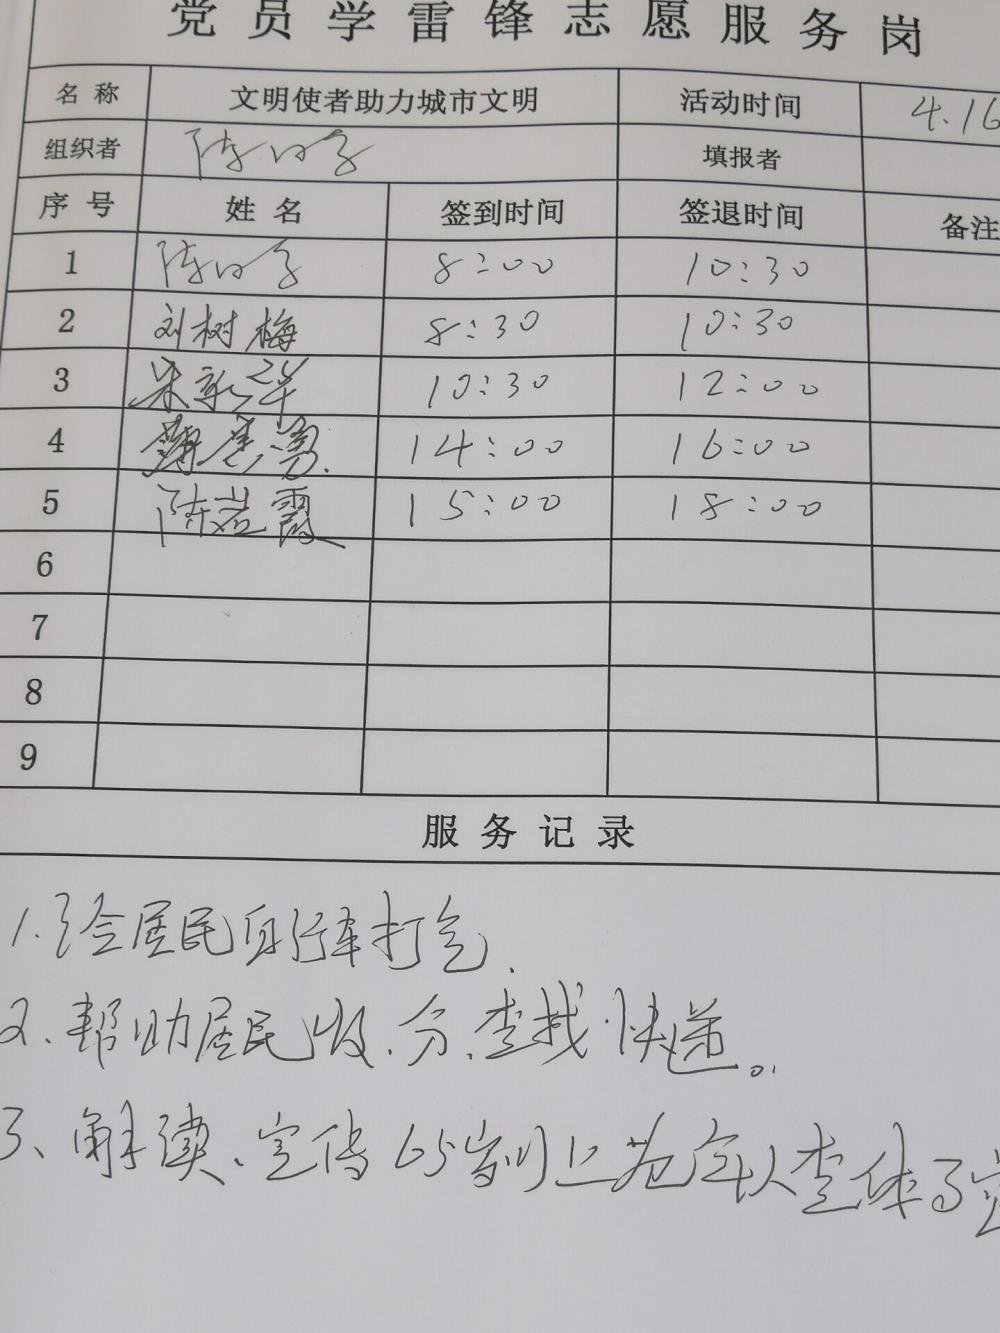 党员学雷锋志愿服务岗
名称 文明使者助力城市文明 活动时间 4.16
组织者 填报者
序号 姓名 签到时间 签退时间 备注
1 8:00 10:30
2 刘树梅 8:30 10:30
3 10:30 12:00
4 14:00 16:00
5 陈岩霞 15:00 18:00
6
7
8
9
服务记录
1.给居民自行车打气.
2、帮助居民收、分、查找快递。
3、解读、宣传65岁以上老年人查体事宜